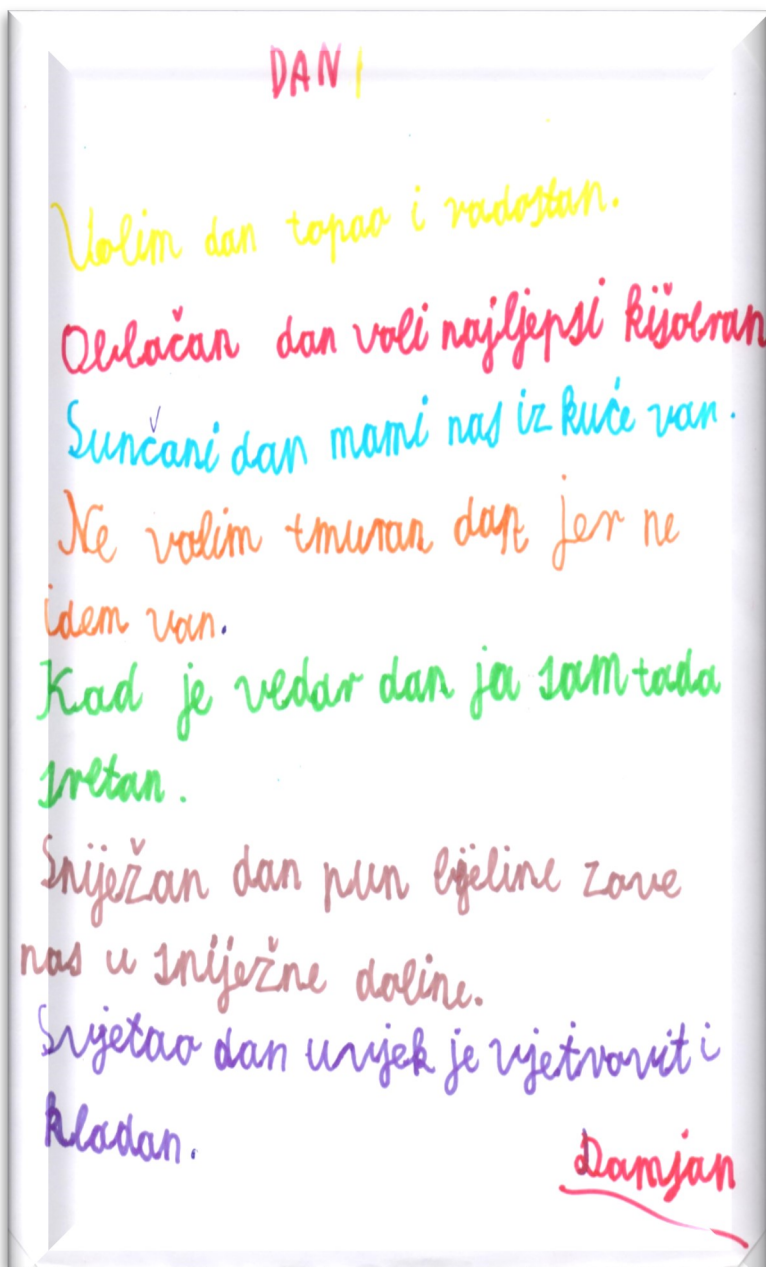 DANI
Volim dan topao i radostan.
Oblačan dan voli najljepsi kišobran
Sunčani dan mami nas iz kuće van.
Ne volim tmuran dan jer ne
idem van.
Kad je vedar dan ja sam tada
sretan.
Sniježan dan pun bijeline zove
nas u sniježne doline.
Svjetao dan uvjek je vjetrovit i
hladan.
Damjan